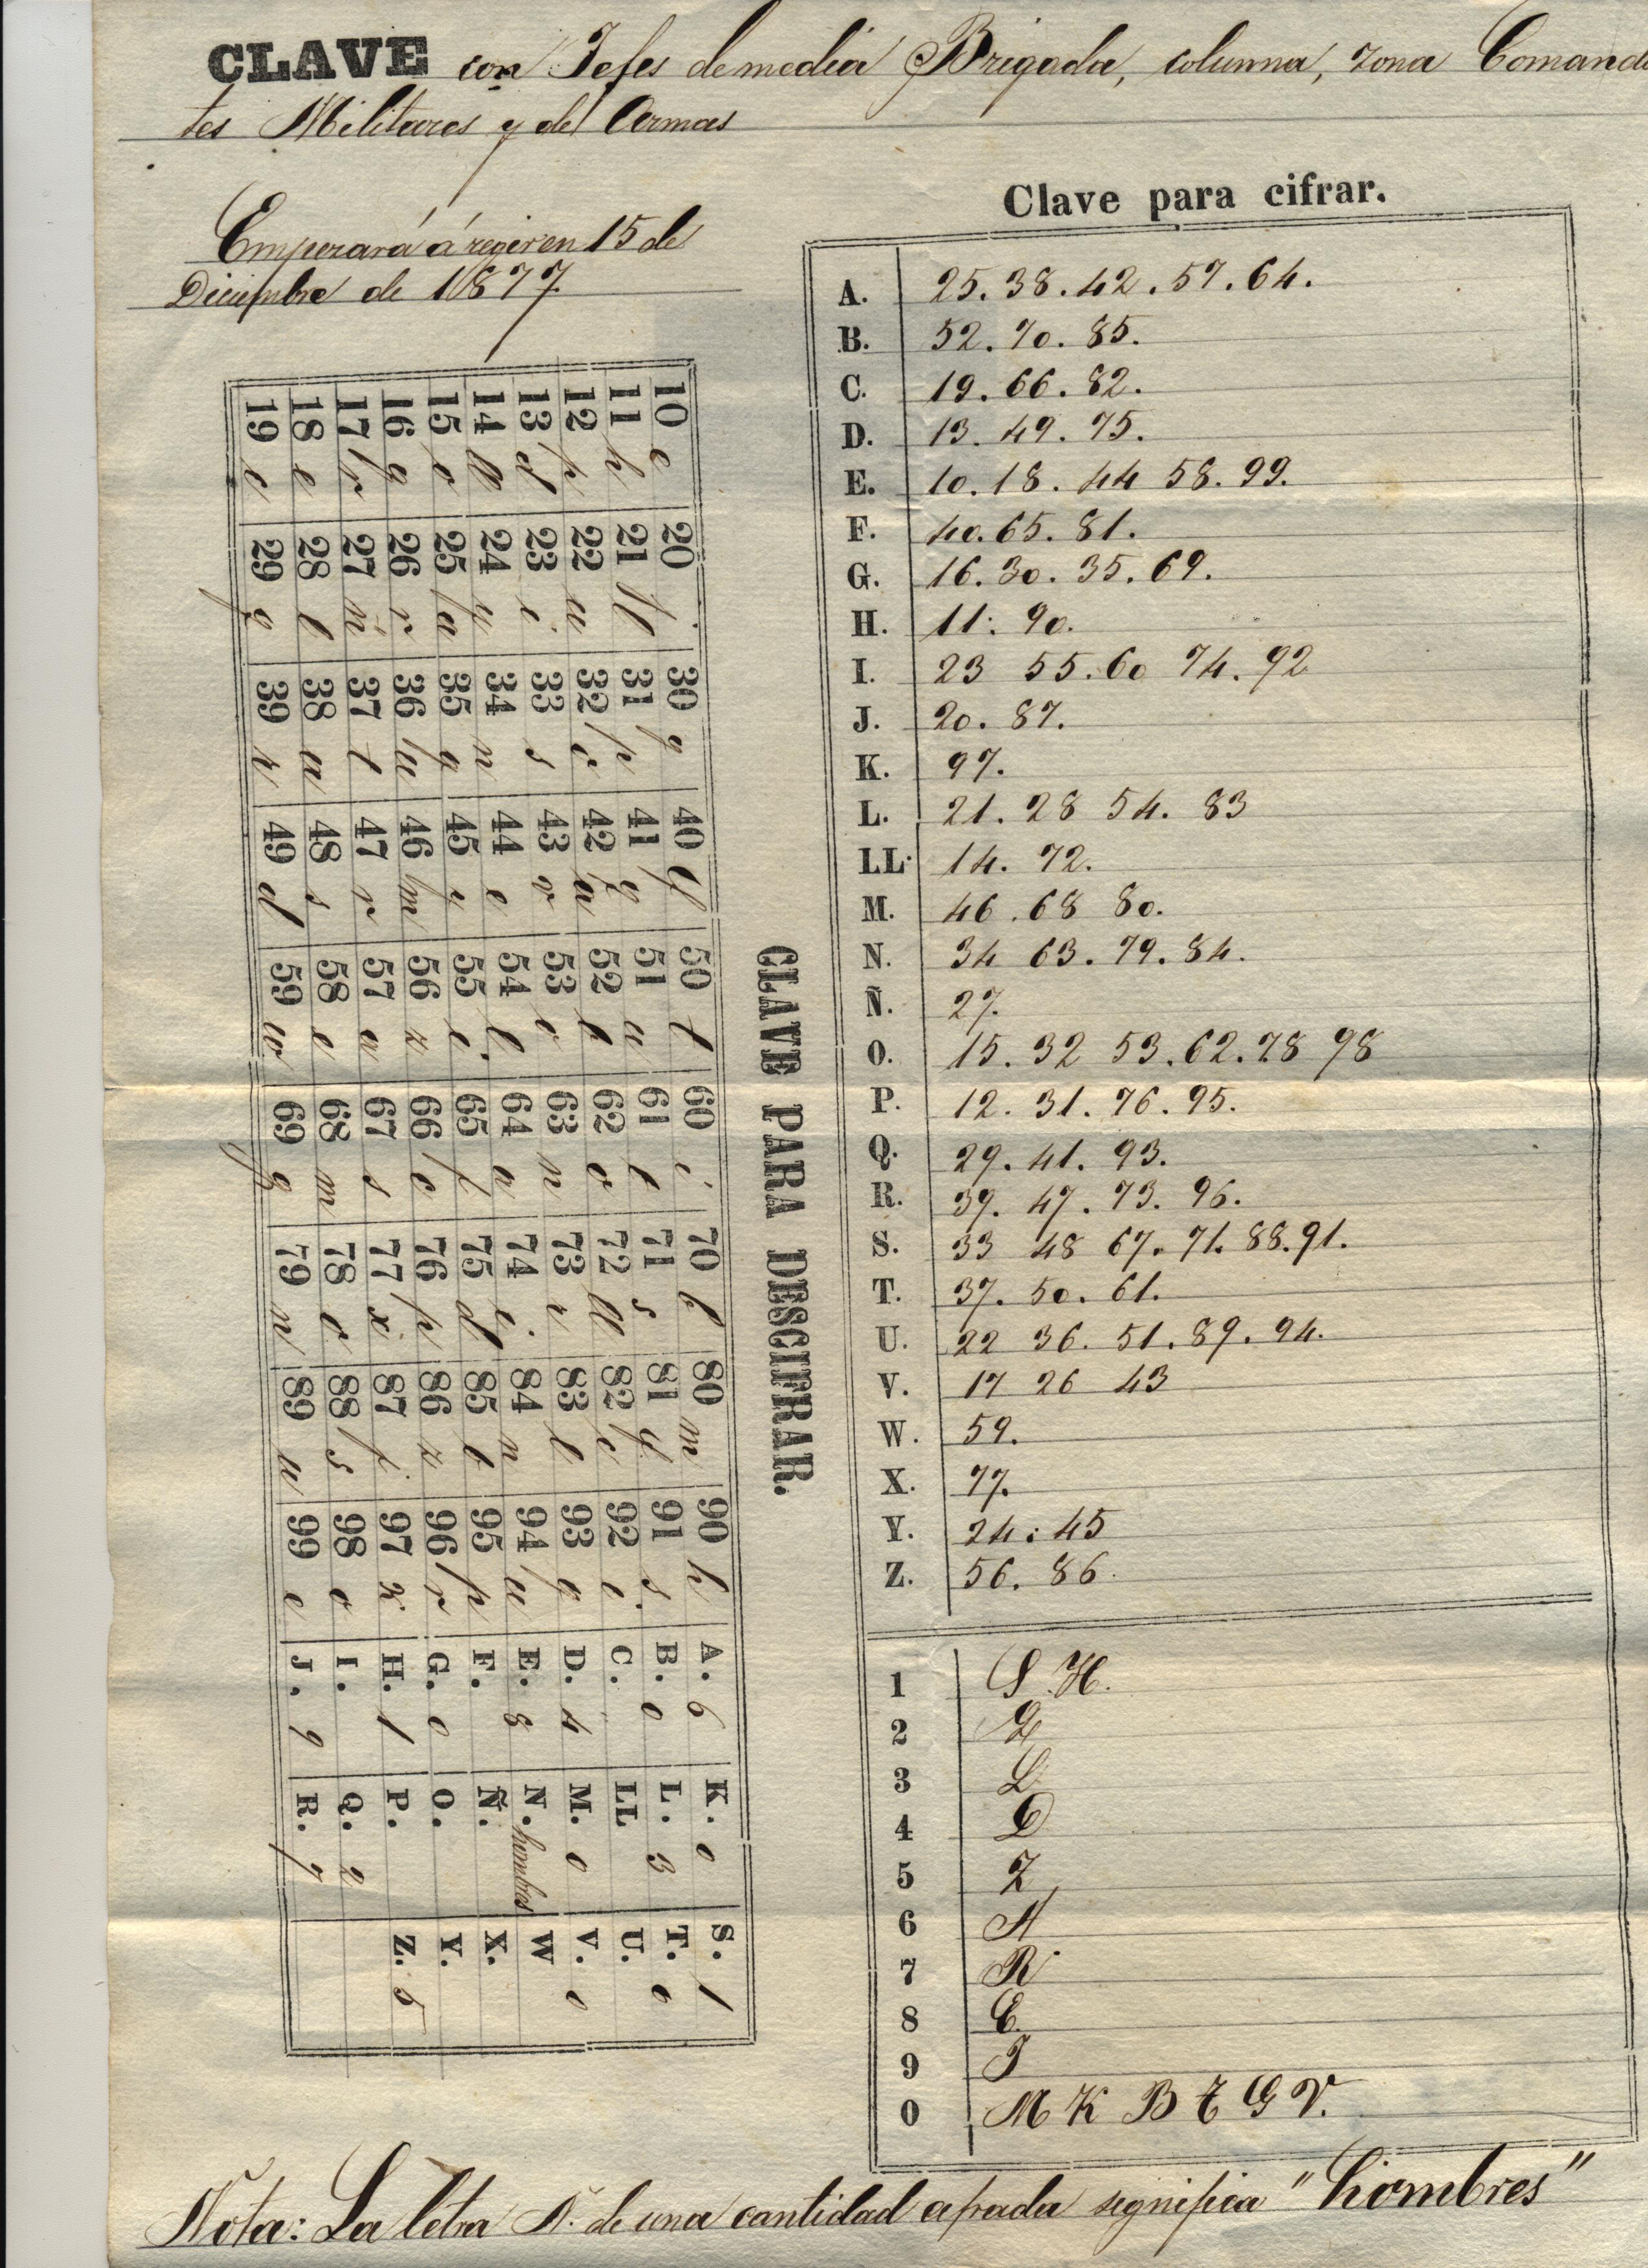 CLAVE con Jefes de media Brigada, columna, zona Comandan
tes Militares y de Armas
Empezará á regir en 15 de
Diciembre de 1877
CLAVE PARA DESCIFRAR.
10 e 20 j 30 g 40 f 50 t 60 i 70 b 80 m 90 h A. 6 K. 0 S. 1
11 h 21 l 31 p 41 q 51 u 61 t 71 s 81 f 91 s B. 0 L. 3 T. 0
12 p 22 u 32 o 42 a 52 b 62 o 72 ll 82 c 92 i C. LL U.
13 d 23 i 33 s 43 v 53 o 63 n 73 r 83 l 93 q D. 4 M. 0 V. 0
14 ll 24 y 34 n 44 e 54 l 64 a 74 i 84 n 94 u E. 8 N. hombres W
15 o 25 a 35 g 45 y 55 i 65 f 75 d 85 b 95 p F. Ñ. X.
16 g 26 v 36 u 46 m 56 z 66 c 76 p 86 z 96 r G. 0 O. Y.
17 v 27 ñ 37 t 47 r 57 a 67 s 77 x 87 j 97 k H. 1 P. Z. 5
18 e 28 l 38 a 48 s 58 e 68 m 78 o 88 s 98 o I. Q. 2
19 c 29 q 39 r 49 d 59 w 69 g 79 n 89 u 99 e J. 9 R. 7
Clave para cifrar.
A. 25. 38. 42. 57. 64.
B. 52. 70. 85.
C. 19. 66. 82.
D. 13. 49. 75.
E. 10. 18. 44 58. 99.
F. 40. 65. 81.
G. 16. 30. 35. 69.
H. 11. 90.
I. 23 55. 60 74. 92
J. 20. 87.
K. 97.
L. 21. 28 54. 83
LL. 14. 72.
M. 46. 68 80.
N. 34 63. 79. 84.
Ñ. 27.
O. 15. 32 53. 62. 78 98
P. 12. 31. 76. 95.
Q. 29. 41. 93.
R. 39. 47. 73. 96.
S. 33 48 67. 71. 88. 91.
T. 37. 50. 61.
U. 22 36. 51. 89. 94.
V. 17 26 43
W. 59.
X. 77.
Y. 24: 45
Z. 56. 86.
1 S H.
2 Q
3 L
4 D
5 Z
6 A
7 R
8 E.
9 J
0 M K B T G V.
Nota: La letra N. de una cantidad cifrada significa "hombres"